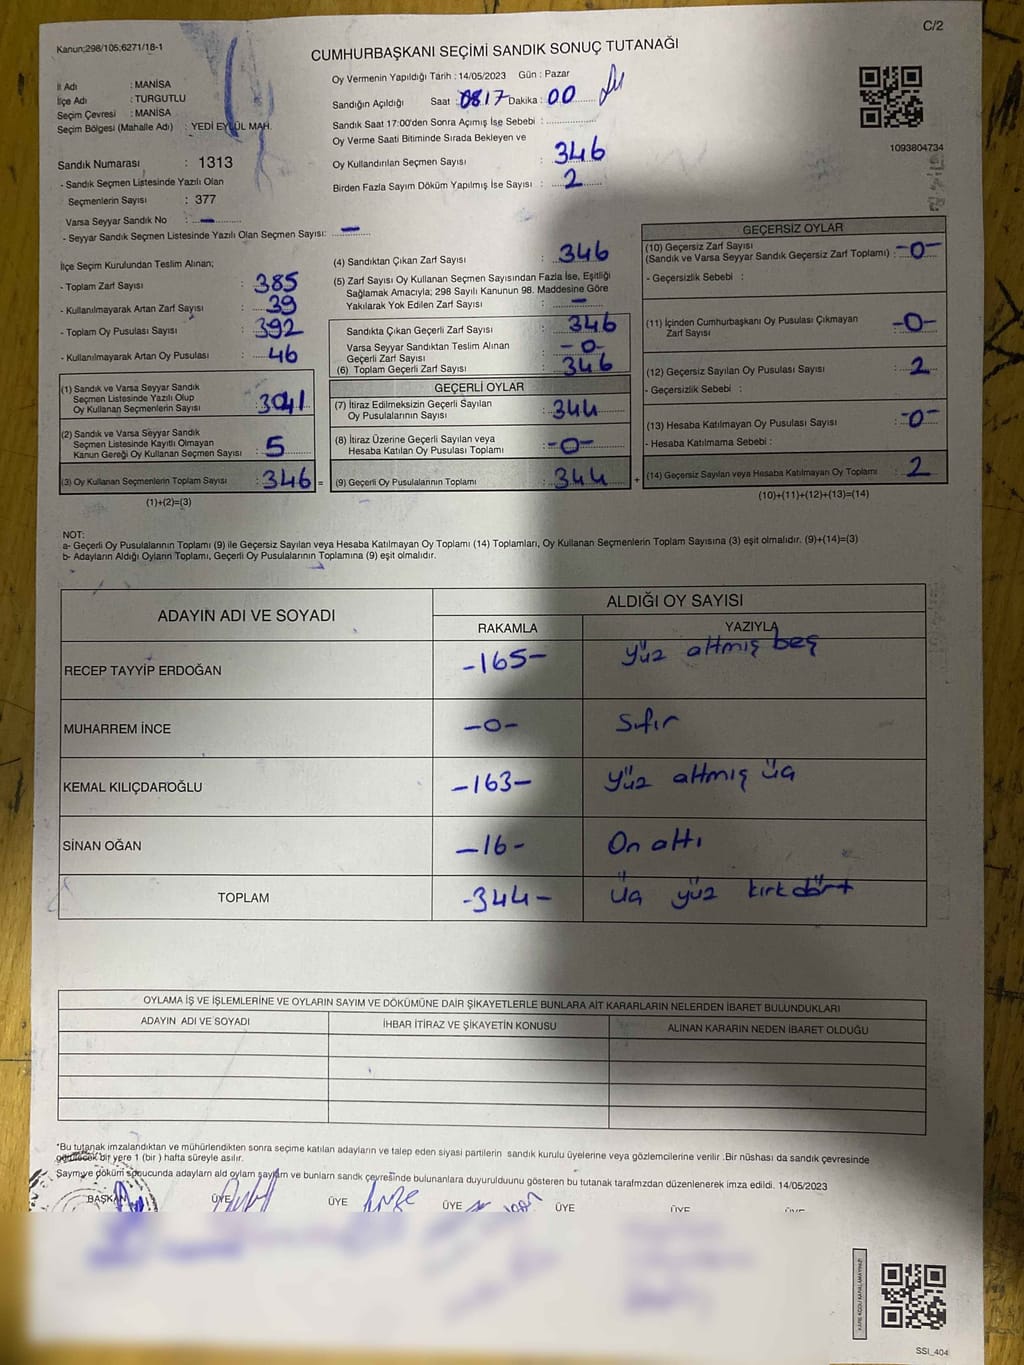 C/2
Kanun;298/105;6271/18-1
CUMHURBAŞKANI SEÇİMİ SANDIK SONUÇ TUTANAĞI
İl Adı : MANİSA
İlçe Adı : TURGUTLU
Seçim Çevresi : MANİSA
Seçim Bölgesi (Mahalle Adı) : YEDİ EYLÜL MAH.
Sandık Numarası : 1313
- Sandık Seçmen Listesinde Yazılı Olan
Seçmenlerin Sayısı : 377
Varsa Seyyar Sandık No : -
- Seyyar Sandık Seçmen Listesinde Yazılı Olan Seçmen Sayısı: -
Oy Vermenin Yapıldığı Tarih : 14/05/2023 Gün : Pazar
Sandığın Açıldığı Saat : 0817 Dakika : 00
Sandık Saat 17:00'den Sonra Açımış İse Sebebi :
Oy Verme Saati Bitiminde Sırada Bekleyen ve
Oy Kullandırılan Seçmen Sayısı : 346
Birden Fazla Sayım Döküm Yapılmış İse Sayısı : 2
1093804734
İlçe Seçim Kurulundan Teslim Alınan;
- Toplam Zarf Sayısı : 385
- Kullanılmayarak Artan Zarf Sayısı : 39
- Toplam Oy Pusulası Sayısı : 392
- Kullanılmayarak Artan Oy Pusulası : 46
(1) Sandık ve Varsa Seyyar Sandık
Seçmen Listesinde Yazılı Olup
Oy Kullanan Seçmenlerin Sayısı : 3041
(2) Sandık ve Varsa Seyyar Sandık
Seçmen Listesinde Kayıtlı Olmayan
Kanun Gereği Oy Kullanan Seçmen Sayısı : 5
(3) Oy Kullanan Seçmenlerin Toplam Sayısı : 346 =
(1)+(2)=(3)
(4) Sandıktan Çıkan Zarf Sayısı : 346
(5) Zarf Sayısı Oy Kullanan Seçmen Sayısından Fazla İse, Eşitliği
Sağlamak Amacıyla; 298 Sayılı Kanunun 98. Maddesine Göre
Yakılarak Yok Edilen Zarf Sayısı : -
Sandıkta Çıkan Geçerli Zarf Sayısı : 346
Varsa Seyyar Sandıktan Teslim Alınan
Geçerli Zarf Sayısı : -0-
(6) Toplam Geçerli Zarf Sayısı : 346
GEÇERLİ OYLAR
(7) İtiraz Edilmeksizin Geçerli Sayılan
Oy Pusulalarının Sayısı : 344
(8) İtiraz Üzerine Geçerli Sayılan veya
Hesaba Katılan Oy Pusulası Toplamı : -0-
(9) Geçerli Oy Pusulalarının Toplamı : 344 +
GEÇERSİZ OYLAR
(10) Geçersiz Zarf Sayısı
(Sandık ve Varsa Seyyar Sandık Geçersiz Zarf Toplamı) : -0-
- Geçersizlik Sebebi :
(11) İçinden Cumhurbaşkanı Oy Pusulası Çıkmayan
Zarf Sayısı : -0-
(12) Geçersiz Sayılan Oy Pusulası Sayısı : 2
- Geçersizlik Sebebi :
(13) Hesaba Katılmayan Oy Pusulası Sayısı : -0-
- Hesaba Katılmama Sebebi :
(14) Geçersiz Sayılan veya Hesaba Katılmayan Oy Toplamı : 2
(10)+(11)+(12)+(13)=(14)
NOT:
a- Geçerli Oy Pusulalarının Toplamı (9) ile Geçersiz Sayılan veya Hesaba Katılmayan Oy Toplamı (14) Toplamları, Oy Kullanan Seçmenlerin Toplam Sayısına (3) eşit olmalıdır. (9)+(14)=(3)
b- Adayların Aldığı Oyların Toplamı, Geçerli Oy Pusulalarının Toplamına (9) eşit olmalıdır.
ADAYIN ADI VE SOYADI
ALDIĞI OY SAYISI
RAKAMLA YAZIYLA
RECEP TAYYİP ERDOĞAN -165- Yüz altmış beş
MUHARREM İNCE -0- Sıfır
KEMAL KILIÇDAROĞLU -163- Yüz altmış üç
SİNAN OĞAN -16- On altı
TOPLAM -344- Üç yüz kırk dört
OYLAMA İŞ VE İŞLEMLERİNE VE OYLARIN SAYIM VE DÖKÜMÜNE DAİR ŞİKAYETLERLE BUNLARA AİT KARARLARIN NELERDEN İBARET BULUNDUKLARI
ADAYIN ADI VE SOYADI İHBAR İTİRAZ VE ŞİKAYETİN KONUSU ALINAN KARARIN NEDEN İBARET OLDUĞU
*Bu tutanak imzalandıktan ve mühürlendikten sonra seçime katılan adayların ve talep eden siyasi partilerin sandık kurulu üyelerine veya gözlemcilerine verilir .Bir nüshası da sandık çevresinde
görülecek bir yere 1 (bir ) hafta süreyle asılır.
Sayım ve döküm sonucunda adayların aldı oyların sayılarını ve bunların sandık çevresinde bulunanlara duyurulduunu gösteren bu tutanak tarafımzdan düzenlenerek imza edildi. 14/05/2023
BAŞKAN ÜYE ÜYE ÜYE ÜYE ÜYE ÜYE
SSI_404